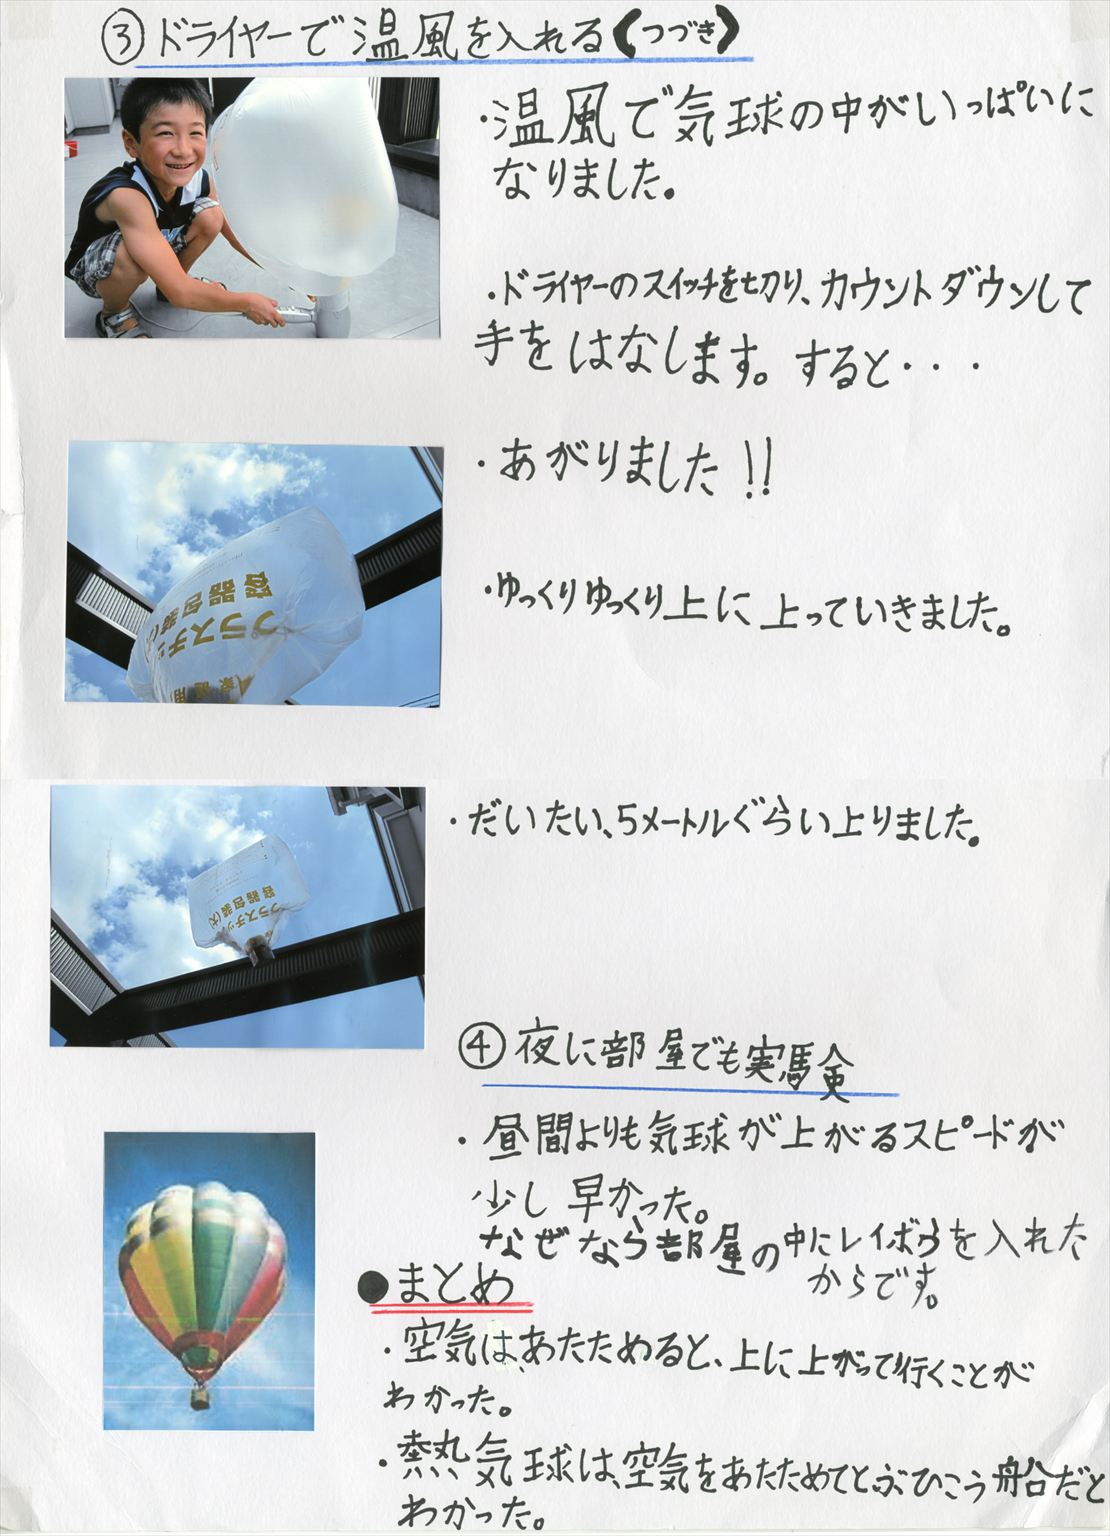 ③ドライヤーで温風を入れる《つづき》
・温風で気球の中がいっぱいに
なりました。
・ドライヤーのスイッチを切り、カウントダウンして
手をはなします。すると・・・
・あがりました!!
・ゆっくりゆっくり上に上っていきました。
容器包装(大)
プラスチッ
(家庭用)
・だいたい、5メートルぐらい上りました。
容器包装(大)
プラスチック
④夜に部屋でも実験
・昼間よりも気球が上がるスピードが
少し早かった。
なぜなら部屋の中にレイボウを入れた
からです。
●まとめ
・空気は、あたためると、上に上がって行くことが
わかった。
・熱気球は、空気をあたためてとぶひこう船だと
わかった。